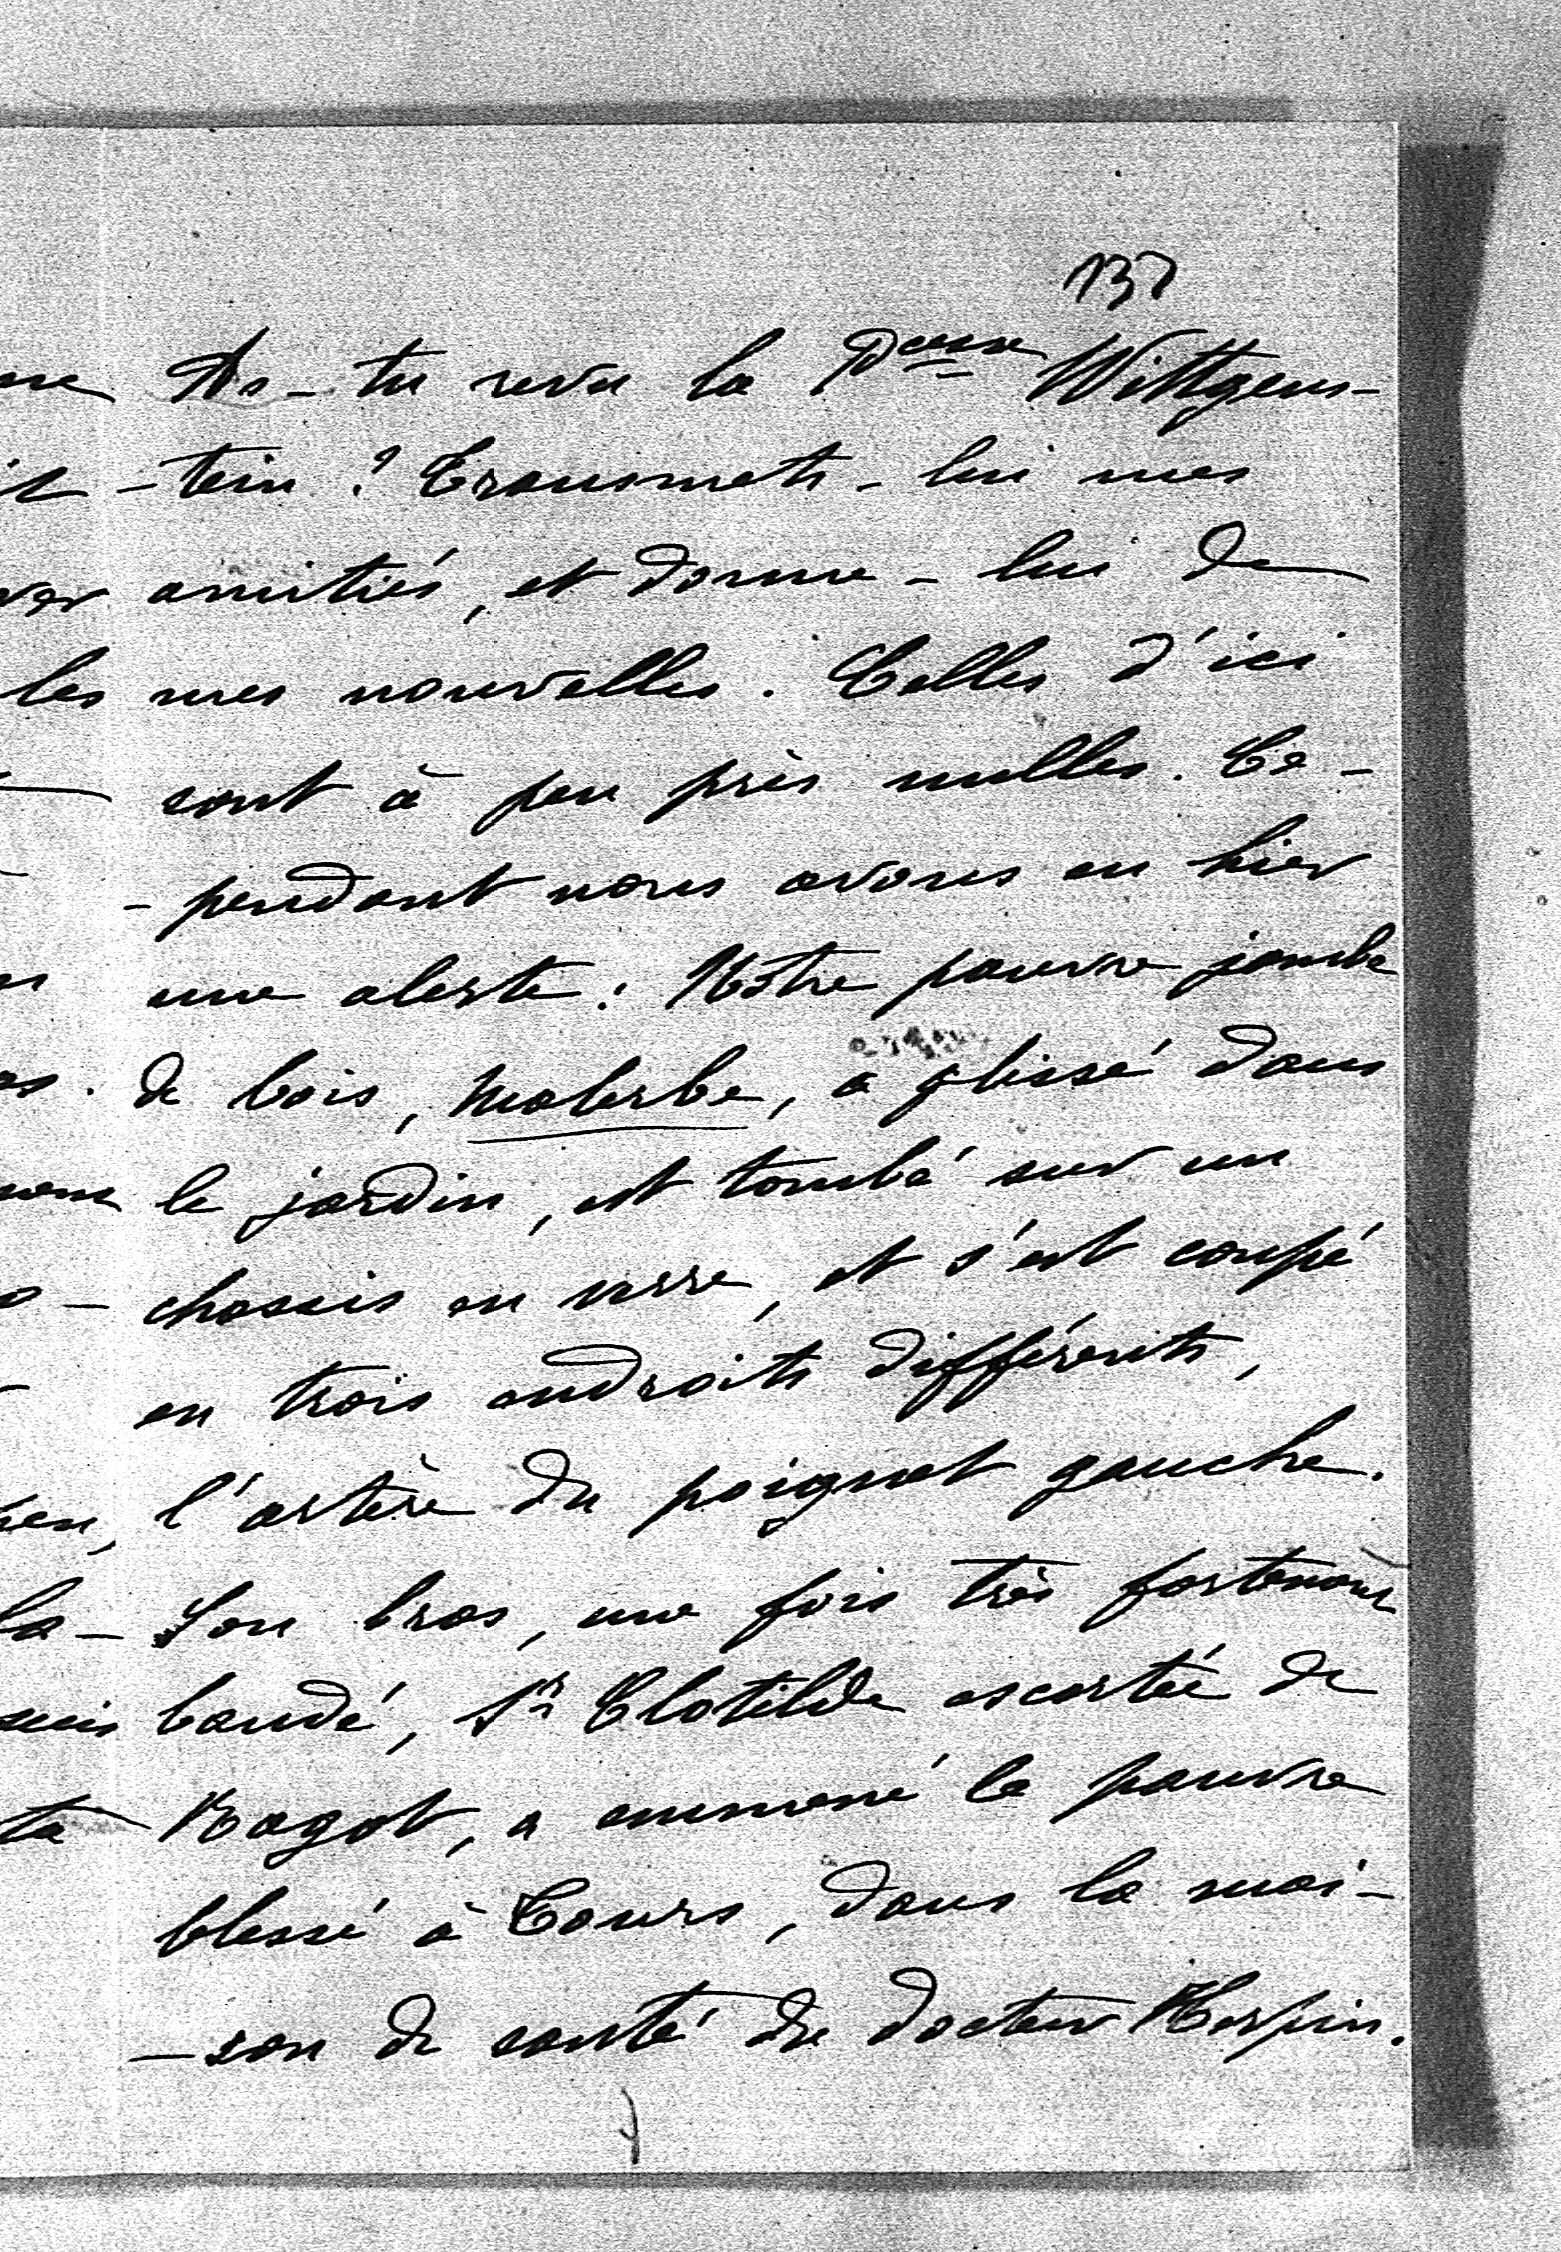 137
As-tu revu la Pcesse Wittgens-
-tein ? Transmets-lui mes
amitiés, et donne-lui de
mes nouvelles. Celles d'ici
sont à peu près nulles. Ce-
-pendant nous avons eu hier
une alerte : Notre pauvre jambe
de bois, Malerbe, a glissé dans
le jardin, est tombé sur un
chassis en verre, et s'est coupé
en trois endroits différents,
l'artère du poignet gauche.
Son bras, une fois très fortement
bandé, Sr Clotilde escortée de
Ragot, a emmené le pauvre
blessé à Tours, dans la mai-
-son de santé du docteur Herpin.